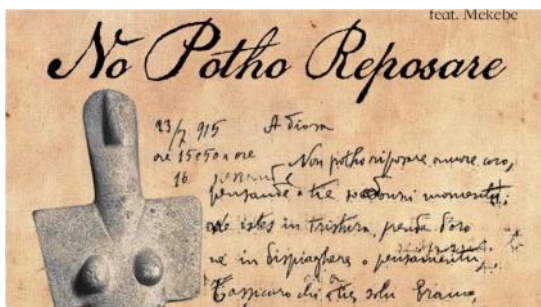 feat. Mekebe
No Potho Reposare
23/7 915 A Diosa
ore 15 e 50 a ore
16
Non potho riposare amore coro,
pensande a tie so donzi momentu;
istes in tristura, prenda d'oro
ne in dispiaghere o pensamentu,
T'assicuro chi a tie solu bramo,